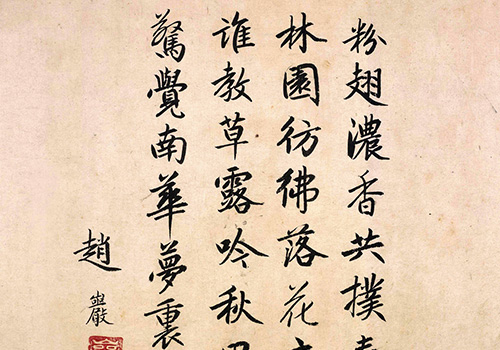 粉翅濃香共撲
林園彷彿落花
誰教草露吟秋
驚覺南華夢裏
趙巖